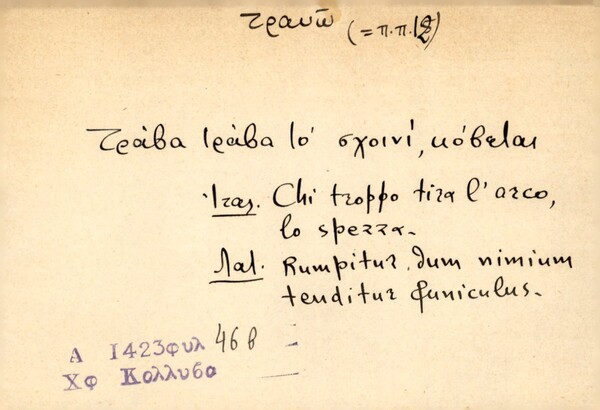 τραυῶ (= π.π. 12)
Τράβα τράβα το' σχοινί, κόβεται
Ἰταλ. Chi troppo tira l'arco,
lo spezza.
Λατ. Rumpitur, dum nimium
tenditur funiculus.
Α 1423 φυλ 46 β
Χφ Κολλυβα